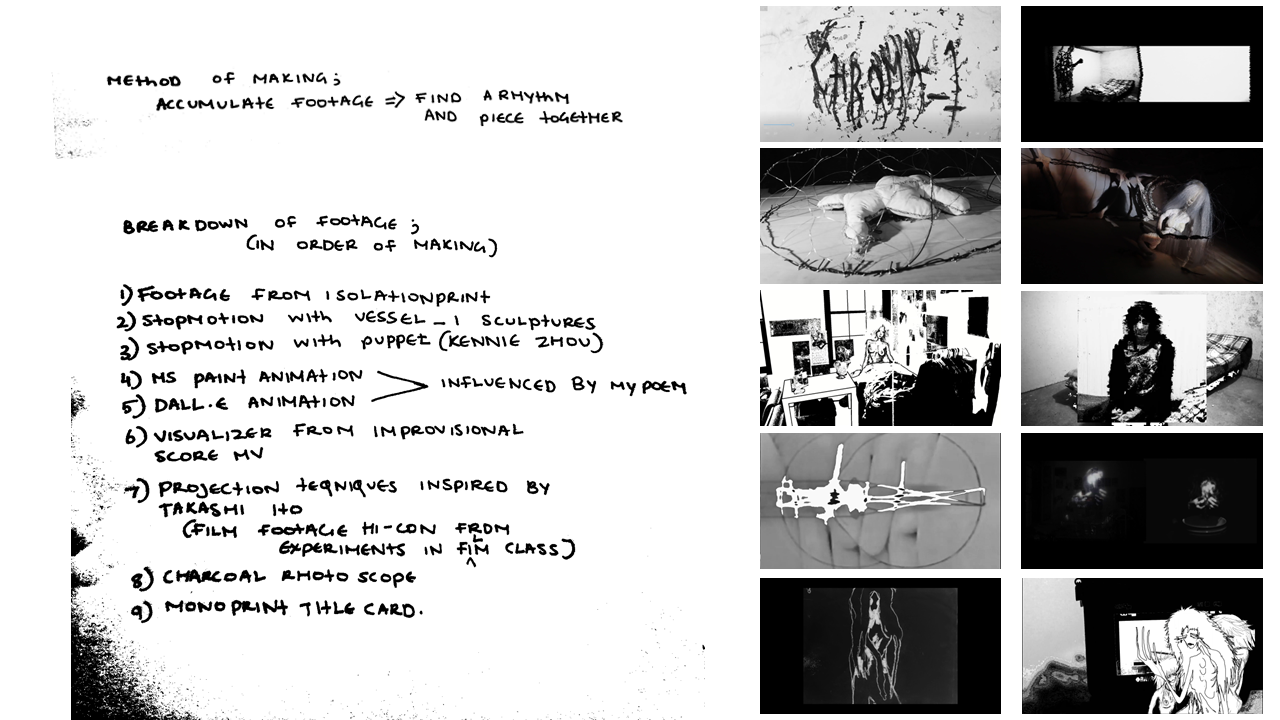 METHOD OF MAKING;
ACCUMULATE FOOTAGE => FIND A RHYTHM
AND PIECE TOGETHER
BREAKDOWN OF FOOTAGE;
(IN ORDER OF MAKING)
1) FOOTAGE FROM ISOLATIONPRINT
2) STOPMOTION WITH VESSEL_1 SCULPTURES
3) STOPMOTION WITH PUPPET (KENNIE ZHOU)
4) MS PAINT ANIMATION
5) DALL.E ANIMATION
INFLUENCED BY MY POEM
6) VISUALIZER FROM IMPROVISIONAL
SCORE MV
7) PROJECTION TEQNIQUES INSPIRED BY
TAKASHI ITO
(FILM FOOTAGE HI-CON FROM
EXPERIMENTS IN FILM CLASS)
8) CHARCOAL RHOTO SCOPE
9) MONOPRINT TITLE CARD.
CHROMA_1